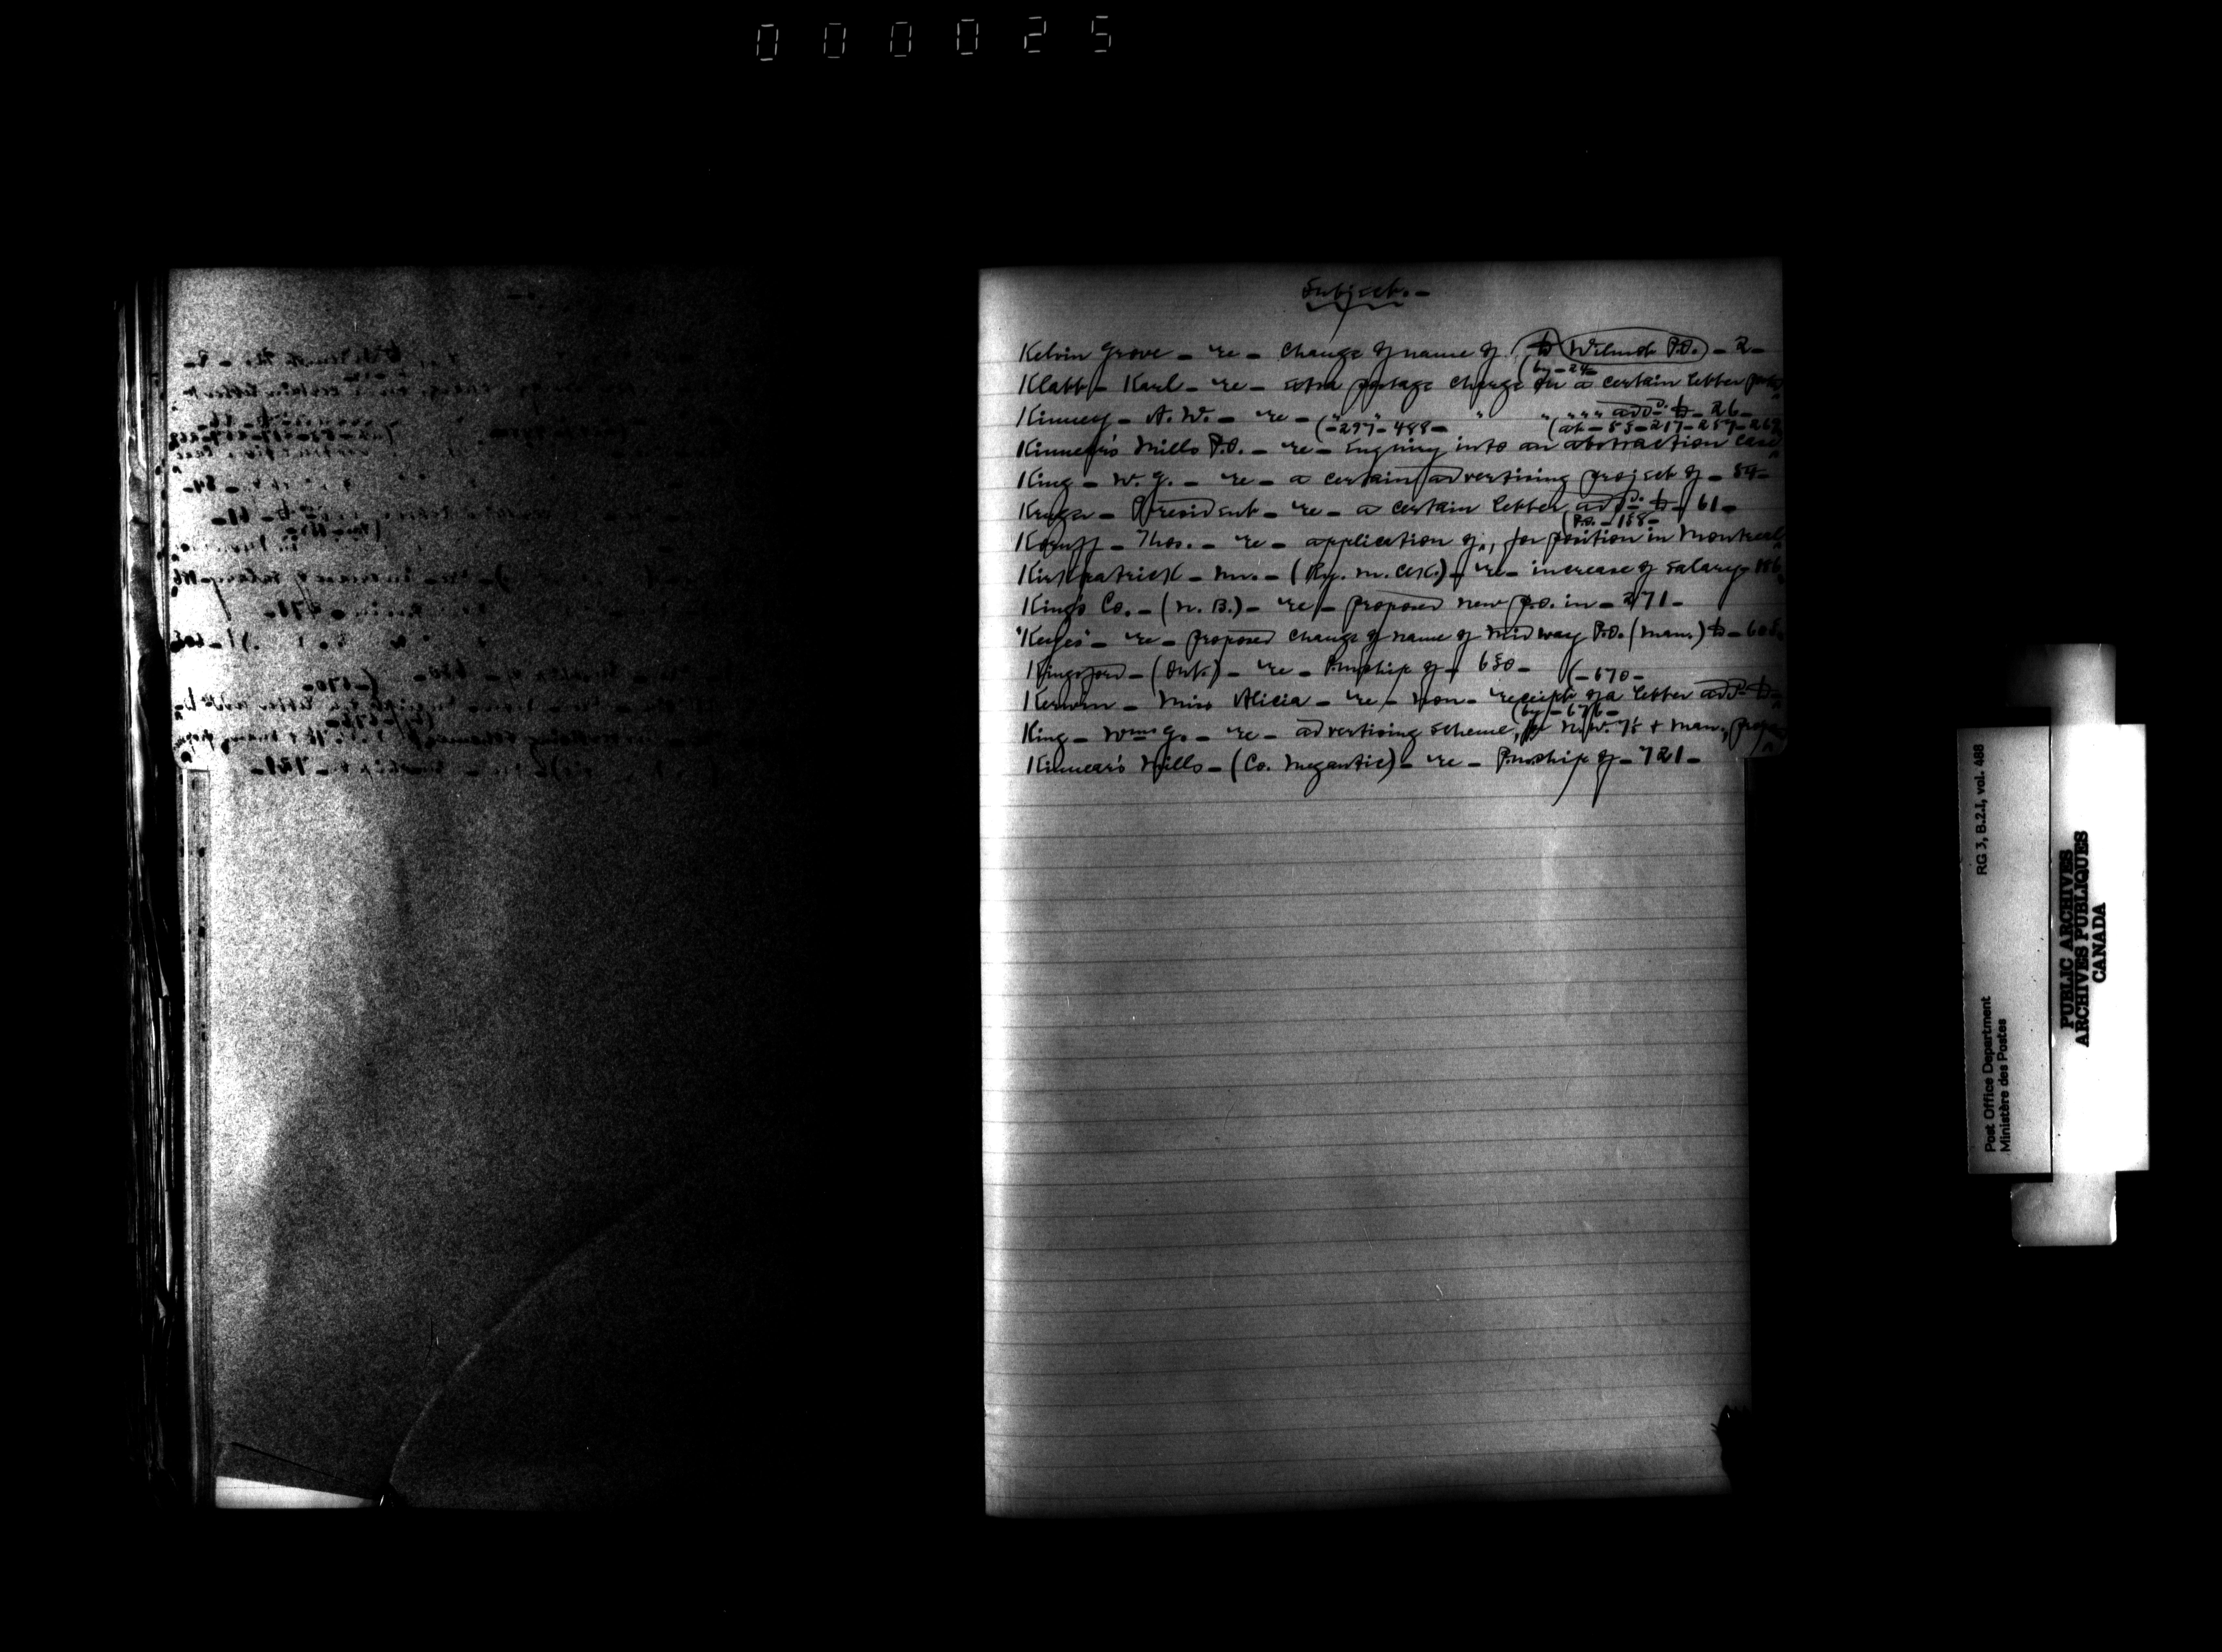 000025
Subject. -
Kelvin Grove - re - change of name of, to Wilmot P.O. - 2 -
(by - 24 -
Klatt - Karl - re - extra postage charge on a certain letter
Kinney - A. W. - re - " " " " " " " add^d. to - 26 -
(- 297 - 488 - (at - 53 - 217 - 257 - 269
Kinnear's Mills P.O. - re - Enquiry into an abstraction case
King - W. G. - re - a certain advertising project of - 59 -
Kruger - President - re - a certain letter add^d. to - 61 -
(P.O. - 158 -
Thos. - re - application of, for position in Montreal
Kirkpatrick - Mr. - (Ry. M. Clk.) - re - increase of salary - 186
King's Co. - (N. B.) - re - proposed new P.O. in - 271 -
"Keyes" - re - proposed change of name of Midway P.O. (Man.) to - 605
Kingsford - (Ont.) - re - P.mship of - 630 -
(- 670 -
Kerwin - Miss Alicia - re - non-receipt of a letter add^d. to
(by - 676 -
King - Wm. G. - re - advertising scheme, for N.W. T's + Man.,
Kinnear's Mills - (Co. Megantic) - re - P.mship of - 721 -
RG 3, B.2.I, vol. 488
Post Office Department
Ministère des Postes
PUBLIC ARCHIVES
ARCHIVES PUBLIQUES
CANADA